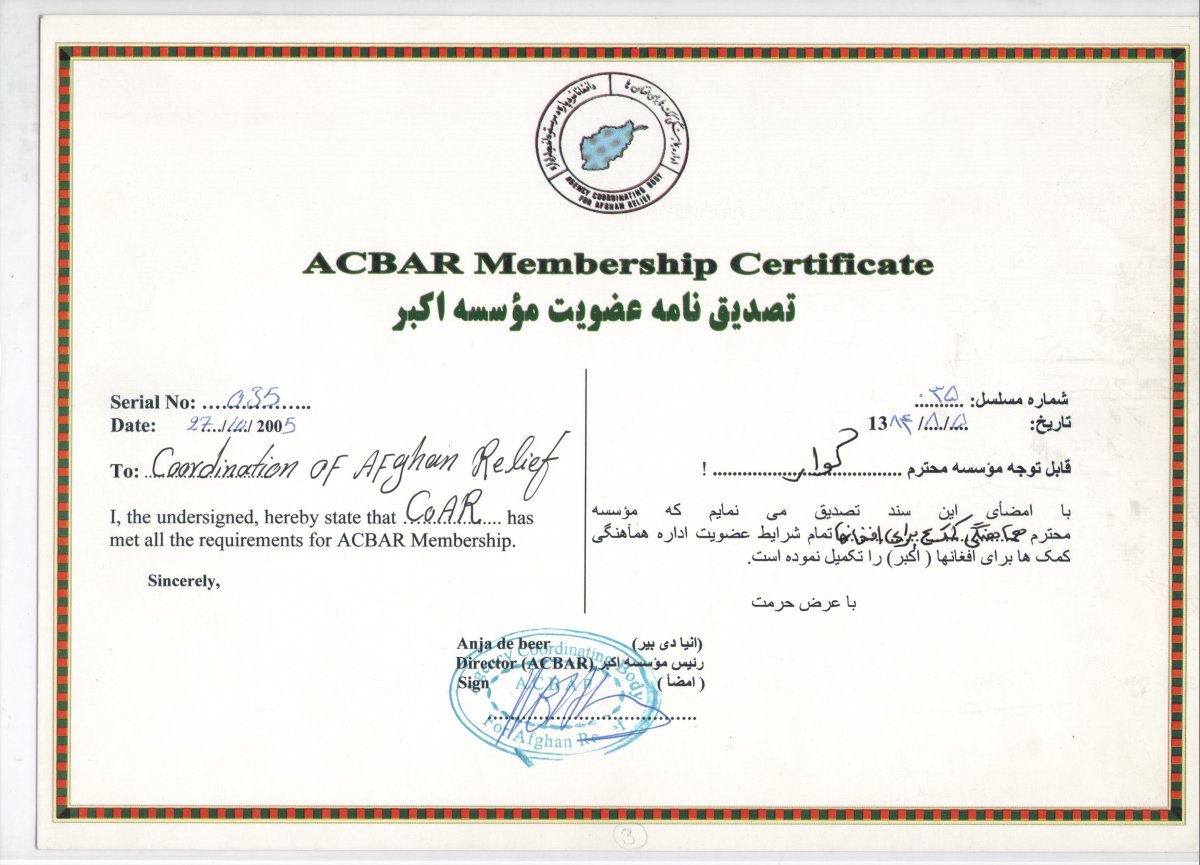 AGENCY COORDINATING BODY
FOR AFGHAN RELIEF
ACBAR Membership Certificate
تصدیق نامه عضویت مؤسسه اکبر
Serial No: ....035......
Date: 27.../10/ 2005
To: Coordination OF AFghan Relief
I, the undersigned, hereby state that ...CoAR.... has
met all the requirements for ACBAR Membership.
Sincerely,
شماره مسلسل: ۰۳۵
تاریخ: 13۸۴ /۸/۵
قابل توجه مؤسسه محترم ........کوار........ !
با امضأی این سند تصدیق می نمایم که مؤسسه
محترم هماهنگی کمک برای افغانها تمام شرایط عضویت اداره همآهنگی
کمک ها برای افغانها ( اکبر) را تکمیل نموده است.
با عرض حرمت
Anja de beer (انیا دی بیر)
Director (ACBAR) رئیس مؤسسه اکبر
Sign ( امضأ )
Agency Coordinating Body
ACBAR
For Afghan
3